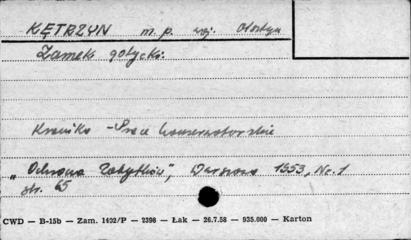 KĘTRZYN m. p. woj. Olsztyn
Zamek gotycki.
Kronika - Prace konserwatorskie
"Ochrona Zabytków", Warszawa 1953, Nr. 1
str. 65
CWD — B-15b — Zam. 1492/P — 2398 — Łak — 26.7.58 — 935.000 — Karton